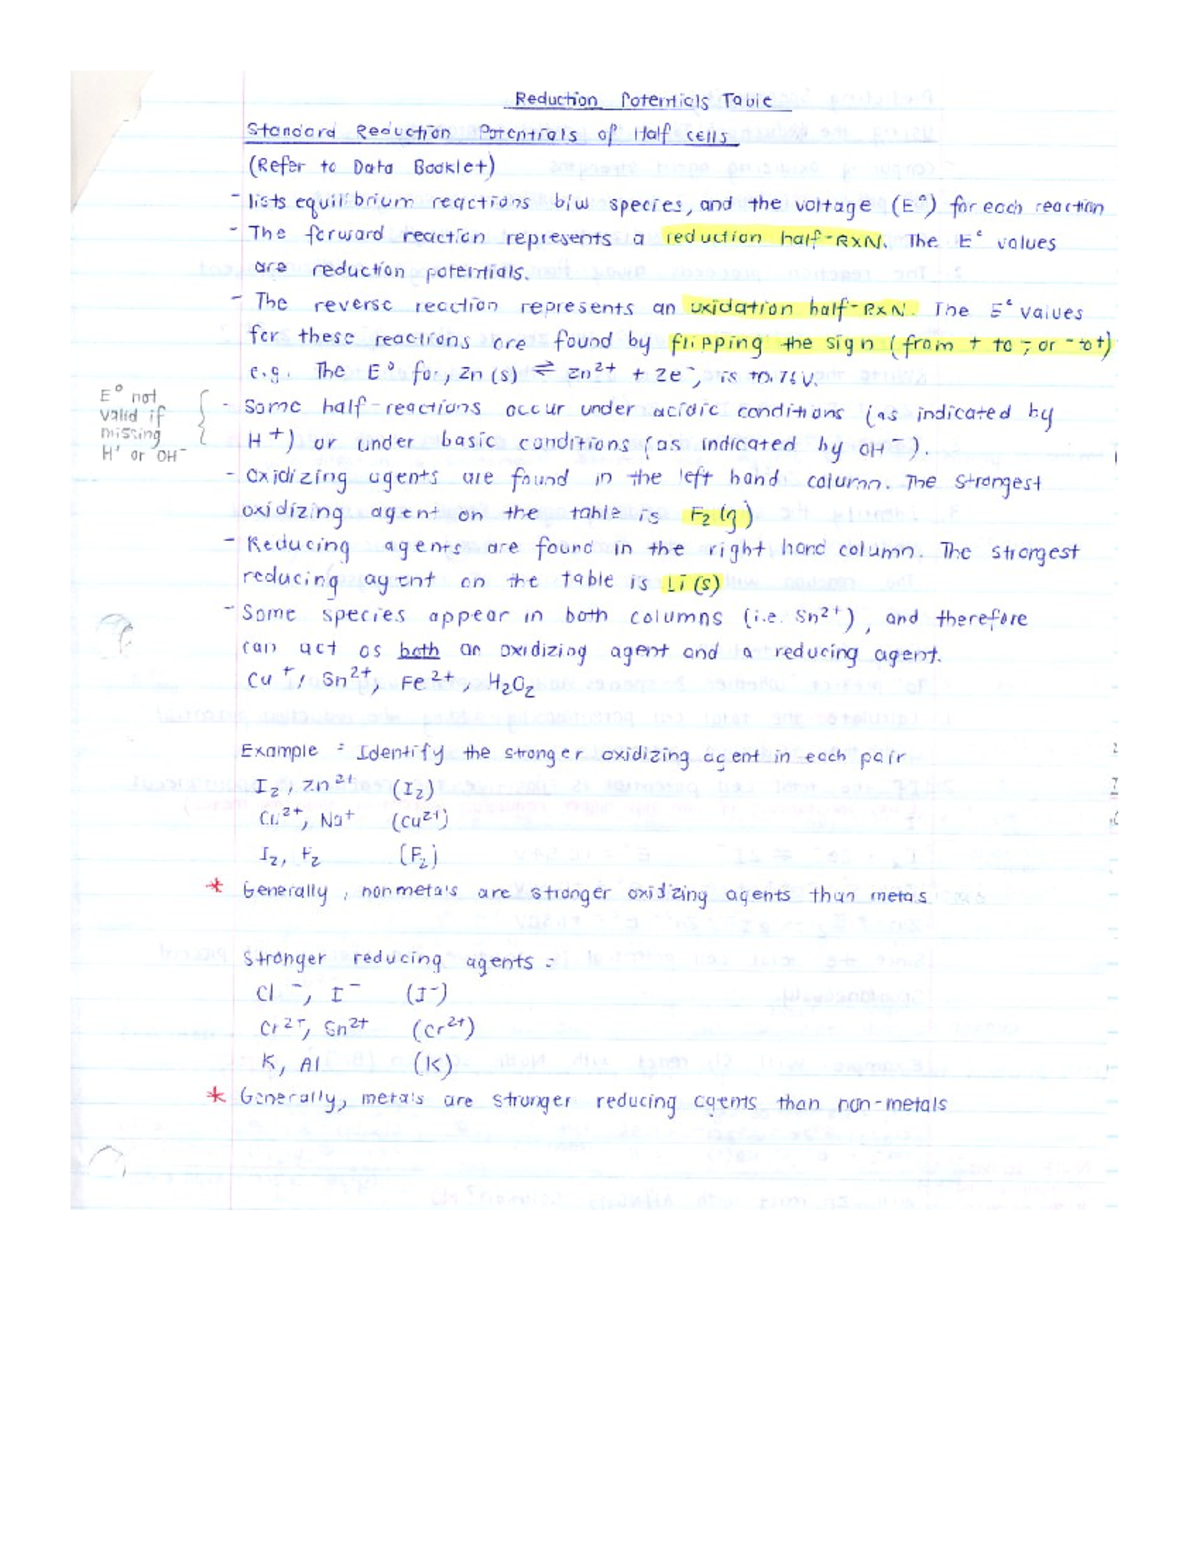 Reduction Potentials Table
Standard Reduction Potentials of Half cells
(Refer to Data Booklet)
- lists equilibrium reactions b/w species, and the voltage (E°) for each reaction
- The forward reaction represents a reduction half-RxN. The E° values
are reduction potentials.
- The reverse reaction represents an oxidation half-RxN. The E° values
for these reactions are found by flipping the sign (from + to -, or - to +)
e.g. The E° for, Zn (s) ⇌ Zn²⁺ + 2e⁻, is +0.76 V.
E° not
valid if
missing
H⁺ or OH⁻
- Some half-reactions occur under acidic conditions (as indicated by
H⁺) or under basic conditions (as indicated by OH⁻).
- Oxidizing agents are found in the left hand column. The strongest
oxidizing agent on the table is F₂ (g)
- Reducing agents are found in the right hand column. The strongest
reducing agent on the table is Li (s)
- Some species appear in both columns (i.e. Sn²⁺), and therefore
can act as both an oxidizing agent and a reducing agent.
Cu⁺, Sn²⁺, Fe²⁺, H₂O₂
Example = Identify the stronger oxidizing agent in each pair
I₂, Zn²⁺ (I₂)
Cu²⁺, Na⁺ (Cu²⁺)
I₂, F₂ (F₂)
* Generally, nonmetals are stronger oxidizing agents than metals
Stronger reducing agents =
Cl⁻, I⁻ (I⁻)
Cr²⁺, Sn²⁺ (Cr²⁺)
K, Al (K)
* Generally, metals are stronger reducing agents than non-metals